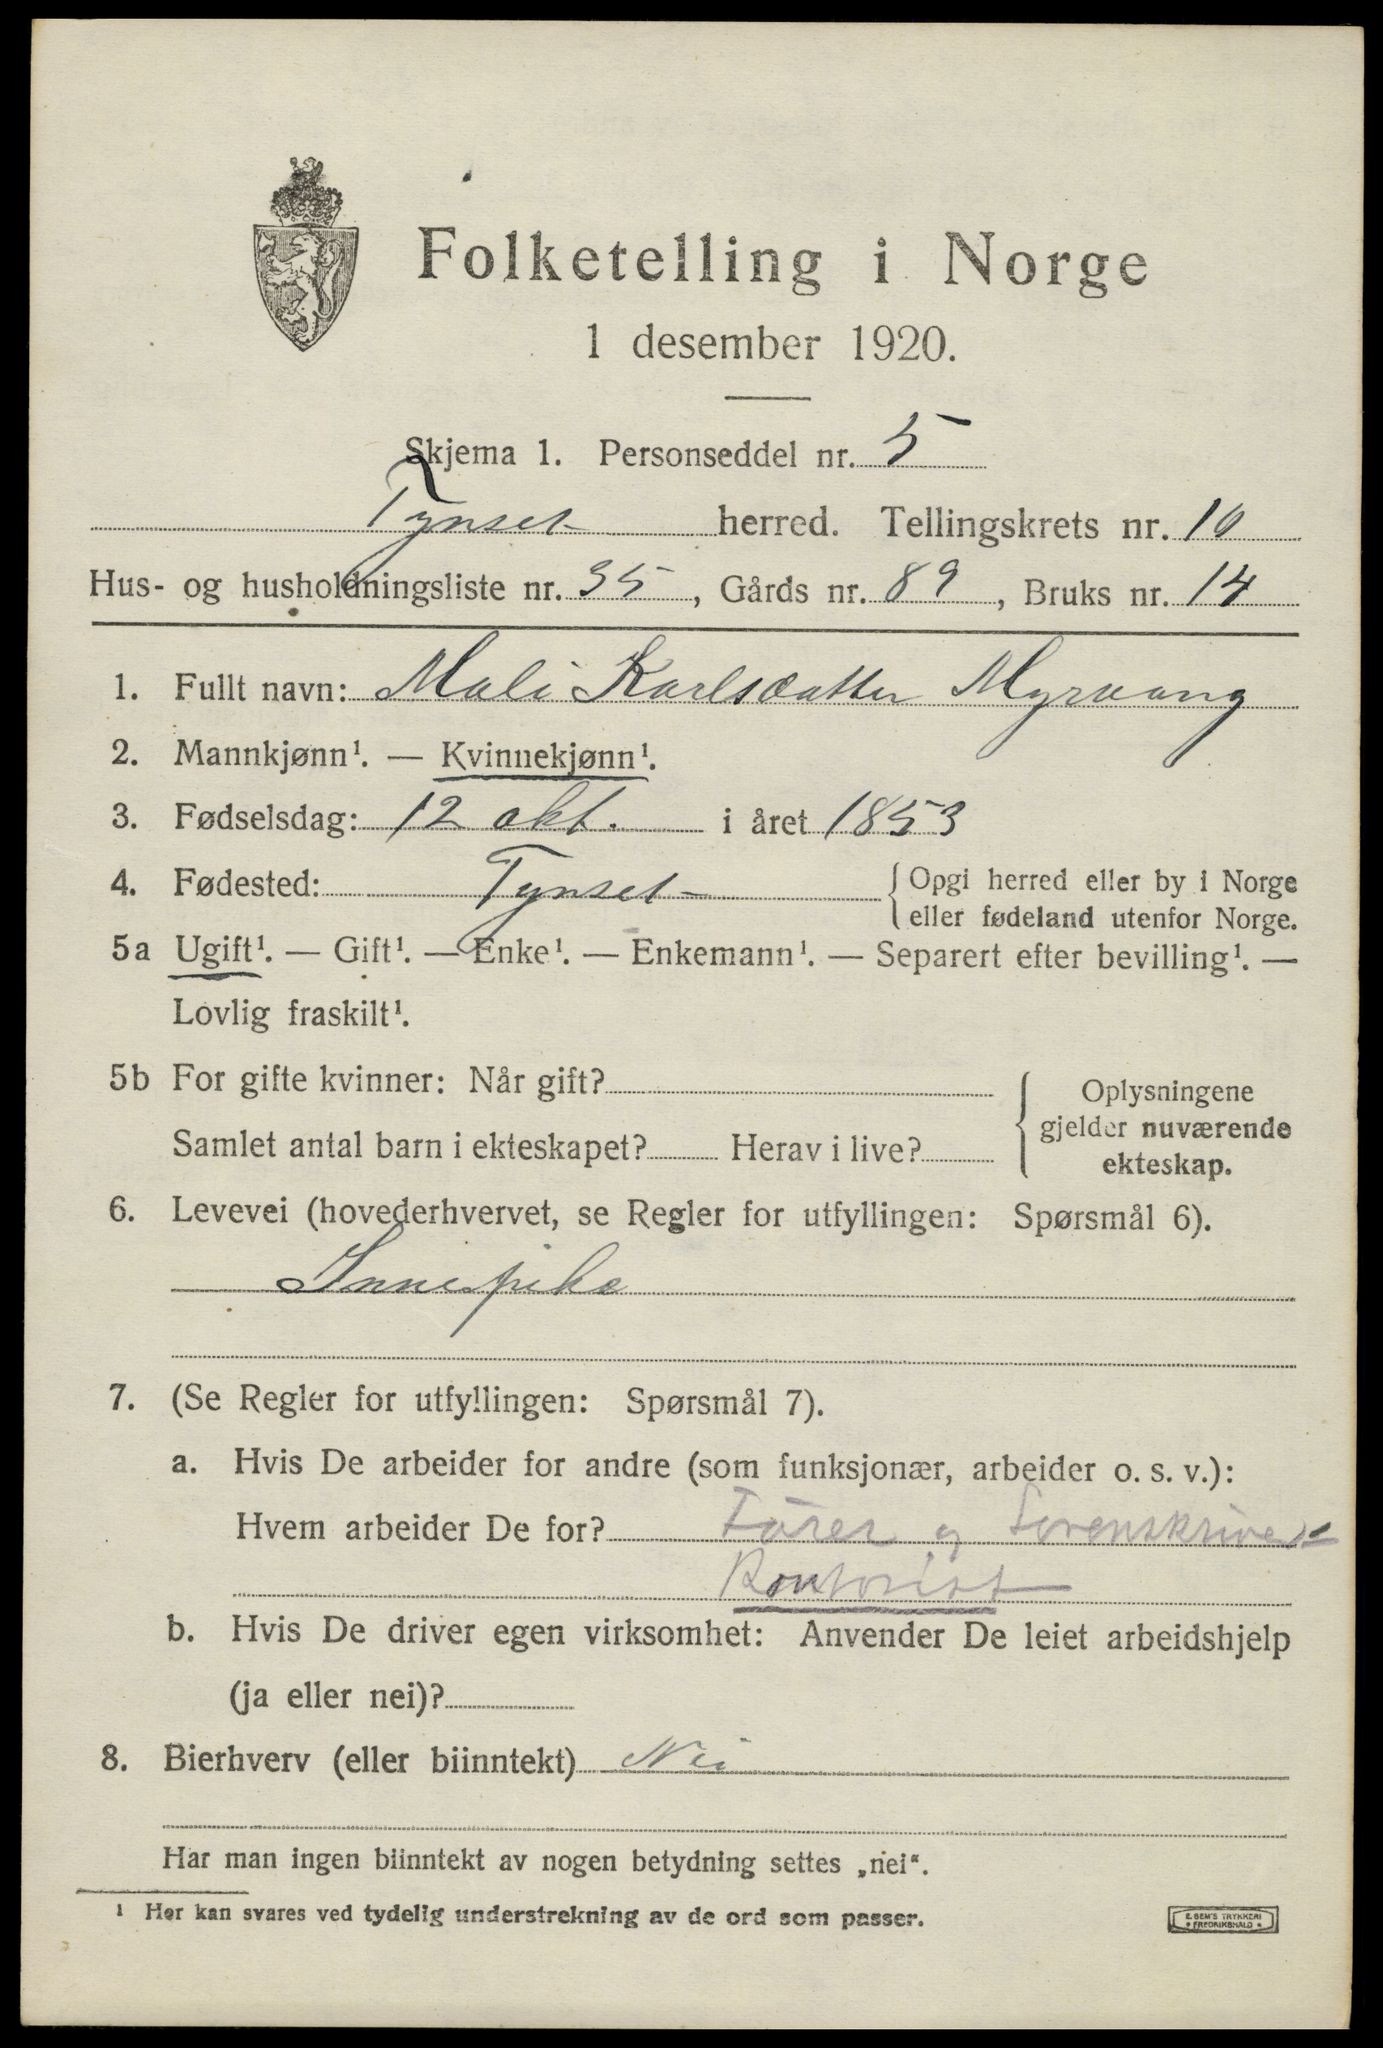 Folketelling i Norge
1 desember 1920.
Skjema 1. Personseddel nr. 5
Tynset herred. Tellingskrets nr. 10
Hus- og husholdningsliste nr. 35, Gårds nr. 89, Bruks nr. 14
1. Fullt navn: Mali Karlsdatter Myrvang
2. Mannkjønn¹. — Kvinnekjønn¹.
3. Fødselsdag: 12 okt. i året 1853
4. Fødested: Tynset { Opgi herred eller by i Norge
eller fødeland utenfor Norge.
5a Ugift¹. — Gift¹. — Enke¹. — Enkemann¹. — Separert efter bevilling¹. —
Lovlig fraskilt¹.
5b For gifte kvinner: Når gift?
Samlet antal barn i ekteskapet? Herav i live?
{ Oplysningene
gjelder nuværende
ekteskap.
6. Levevei (hovederhvervet, se Regler for utfyllingen: Spørsmål 6).
Innepike
7. (Se Regler for utfyllingen: Spørsmål 7).
a. Hvis De arbeider for andre (som funksjonær, arbeider o. s. v.):
Hvem arbeider De for? og Sorenskriver
Kontorist
b. Hvis De driver egen virksomhet: Anvender De leiet arbeidshjelp
(ja eller nei)?
8. Bierhverv (eller biinntekt) Nei
Har man ingen biinntekt av nogen betydning settes „nei".
¹ Her kan svares ved tydelig understrekning av de ord som passer.
E. SEM'S TRYKKERI
• FREDRIKSHALD •